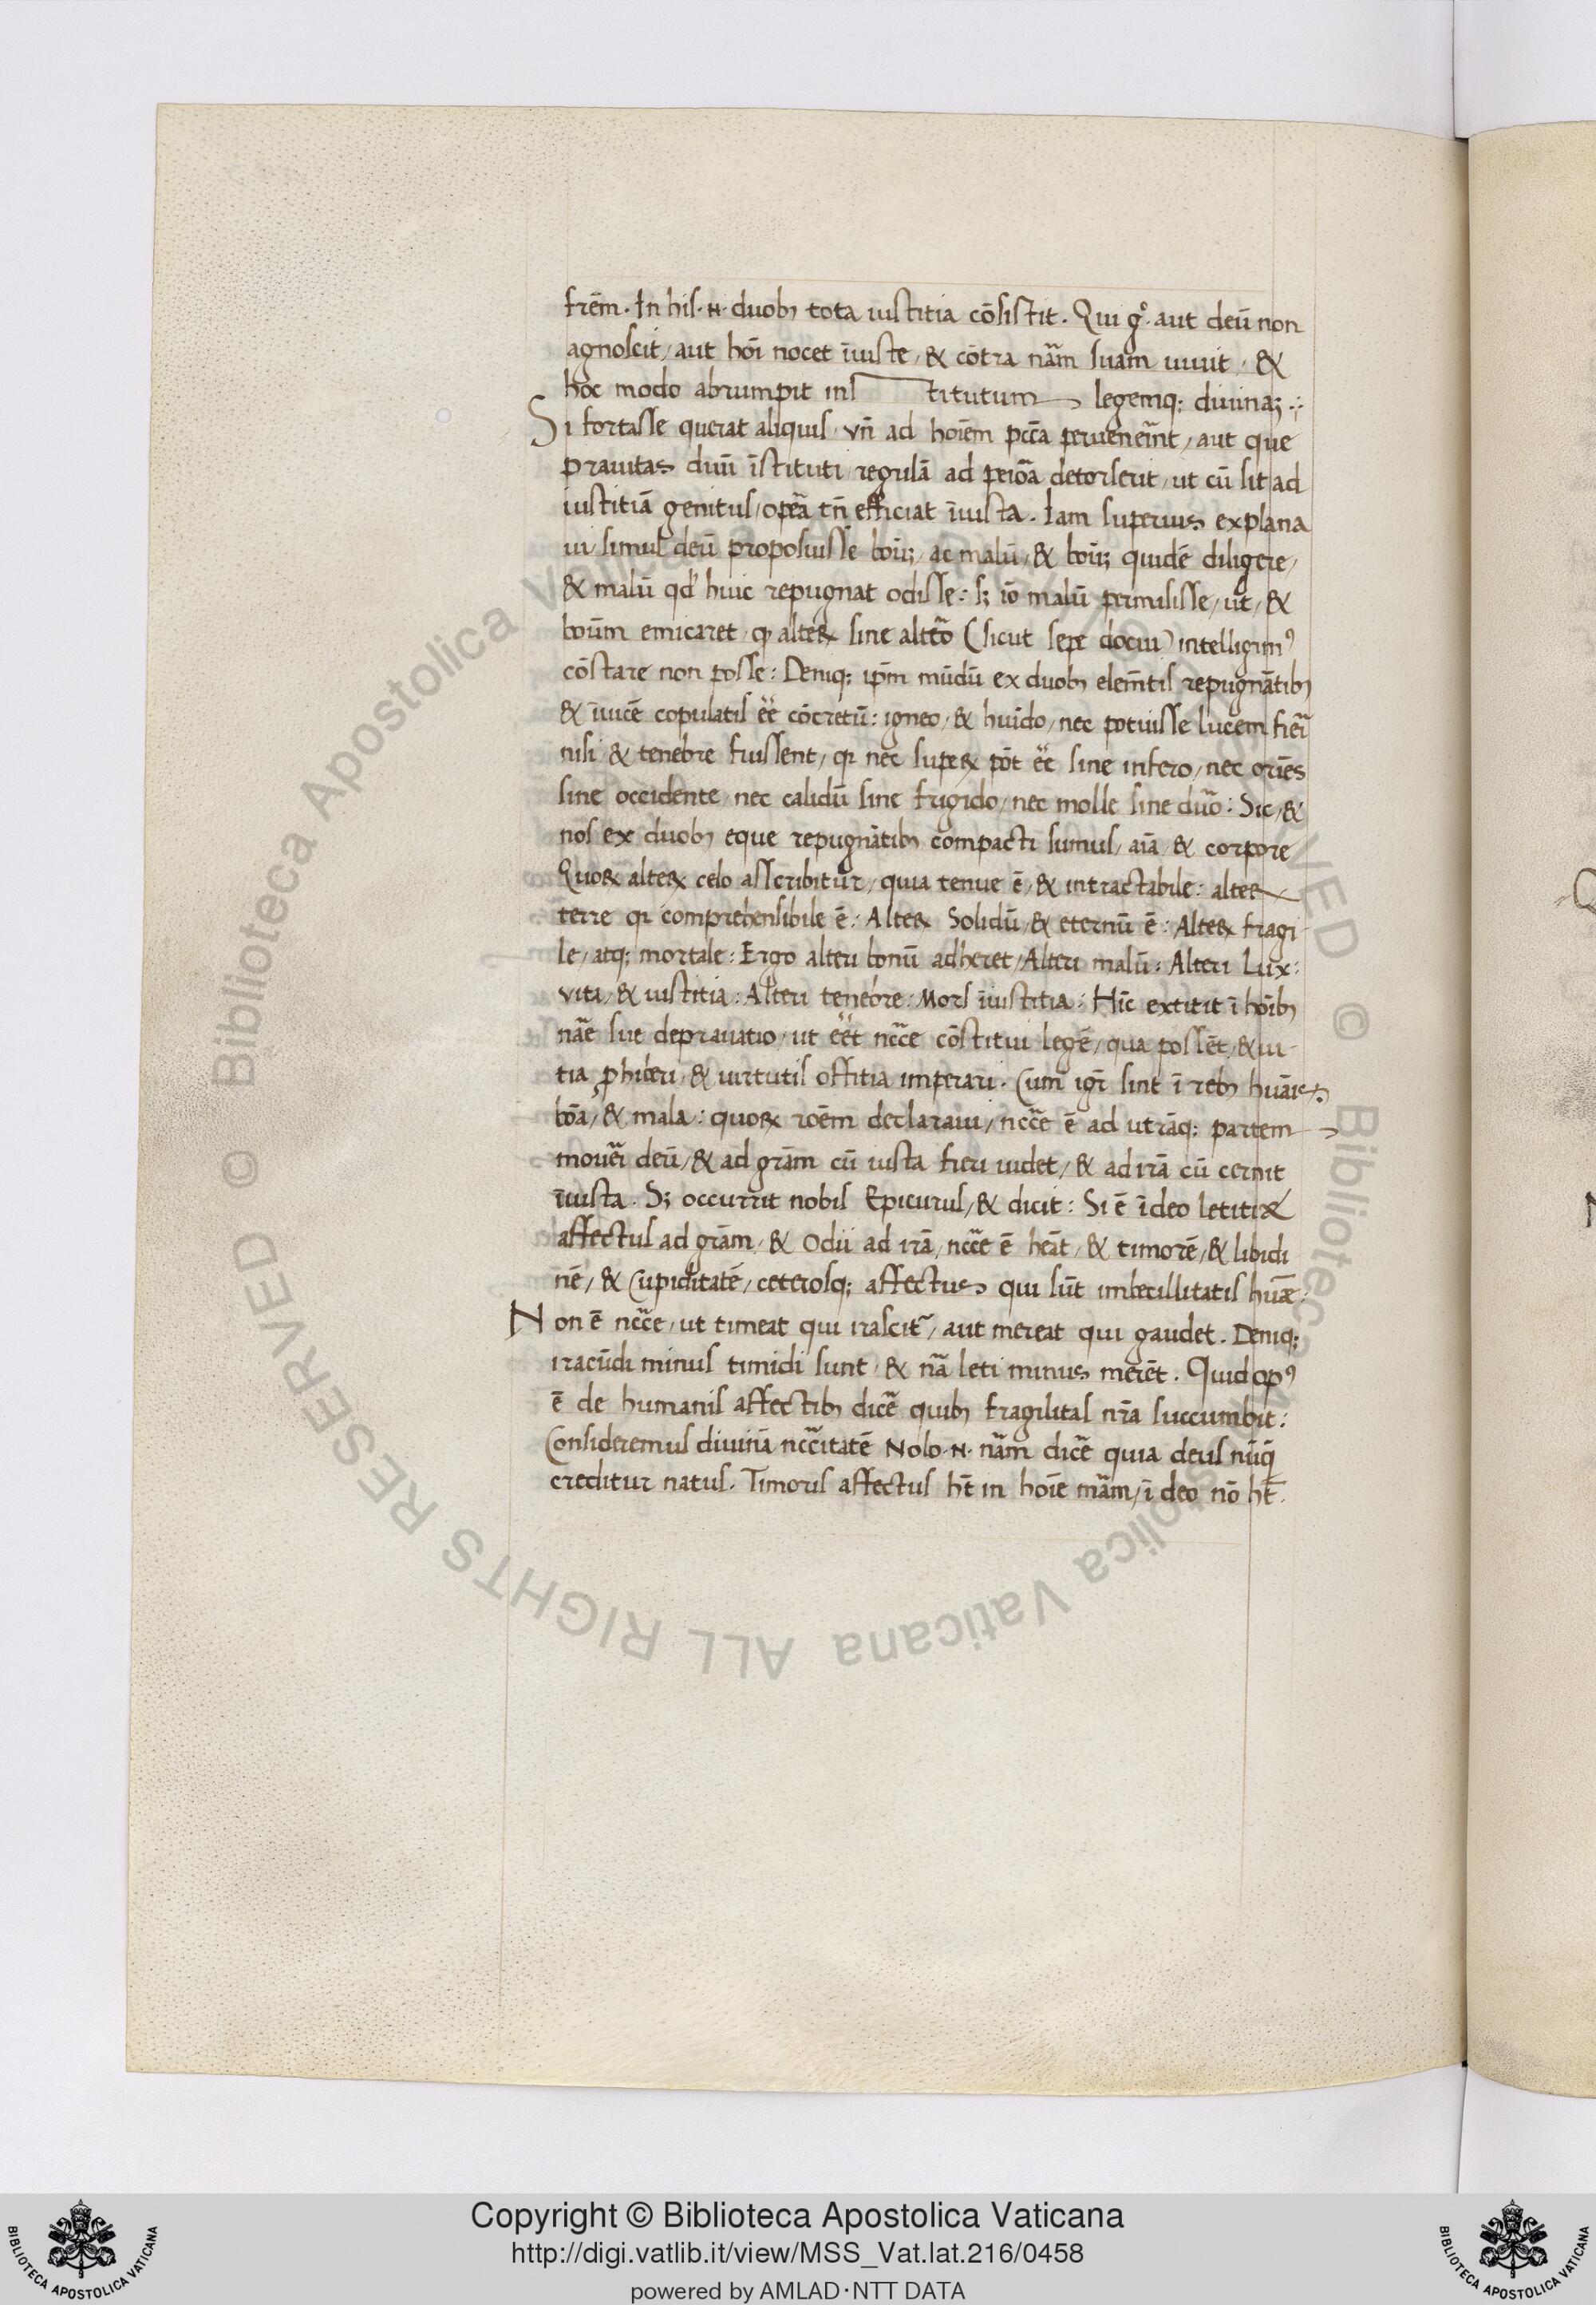 frēm. In his .N. duobꝫ tota iustitia cōsistit. Qui gͦ. aut deū non
agnoscit, aut hōi nocet īiuste, & cōtra nāꝫ suam uiuit, &
hoc modo abrumpit ins titutum legemqꝫ diuinaꝫ.
Si fortasse querat aliquis, vn̄ ad hoīem pcc̄a peruenerīnt, aut que
prauitas diuī īstituti regulā ad peiōa detorserit, ut cū sit ad
iustitiā genitus, opēa tn̄ efficiat īiusta. Iam superius explana
ui simul deū proposuisse bōuꝫ, ac malū, & bōuꝫ quidē diligere,
& malū qd' huic repugnat odisse: sꝫ iō malū permisisse, ut, &
boūm emicaret, qꝫ alteꝝ sine altēo (sicut sepe docui) intelligimꝰ
cōstare non posse: Deniqꝫ ip̄m mūdū ex duobꝫ elem̄tis repugnātibꝫ
& īuicē copulatis eē cōcretū: igneo, & huīdo, nec potuisse lucem fierī
nisi & tenebre fuissent, qꝛ nec supeꝝ pōt eē sine infero, nec oriēs
sine occidente, nec calidū sine frigido, nec molle sine duō: Sic, &
nos ex duobꝫ eque repugnātibꝫ compacti sumus, aīa, & corpore
Quoꝝ alteꝝ celo asscribitur, quia tenue ē, & intractabile: alteꝝ
terre qꝛ comprehensibile ē: Alteꝝ Solidū, & eternū ē: Alteꝝ fragi-
le, atqꝫ mortale: Ergo alteri bonū adheret, Alteri malū: Alteri Lux:
vita, & iustitia: Alteri tenebre: Mors īiustitia: Hīc extitit ī hoībꝫ
nāe sue deprauatio, ut eēt ncc̄e cōstitui legē, qua possēt, & ui-
tia ꝓhiberi, & uirtutis offitia imperari. Cum igr̄ sint ī rebꝫ huāis
bōa, & mala: quoꝝ rōem declaraui, ncc̄e ē ad utrāqꝫ partem
mouēi deū, & ad grām cū iusta fieri uidet, & ad irā cū cernit
īiusta. Sꝫ occurrit nobis Epicurus, & dicit: Si ē ī deo letitiæ
affectus ad grām, & Odii ad irā, ncc̄e ē heāt, & timorē, & libidi
nē, & Cupiditatē, ceterosqꝫ affectus qui sūt imbecillitatis huāe:
Non ē ncc̄e, ut timeat qui irascit̄, aut mereat qui gaudet. Deniqꝫ
iracūdi minus timidi sunt, & nā leti minus merēt. Quid opꝰ
ē de humanis affectibꝫ dicē quibꝫ fragilitas nr̄a succumbit:
Consideremus diuinā ncc̄itatē Nolo .N. nām dicē quia deus nūqꝫ
creditur natus. Timoris affectus ht̄ in hoīe mām, ī deo nō ht̄.
Copyright © Biblioteca Apostolica Vaticana
http://digi.vatlib.it/view/MSS_Vat.lat.216/0458
powered by AMLAD·NTT DATA
BIBLIOTECA APOSTOLICA VATICANA
BIBLIOTECA APOSTOLICA VATICANA